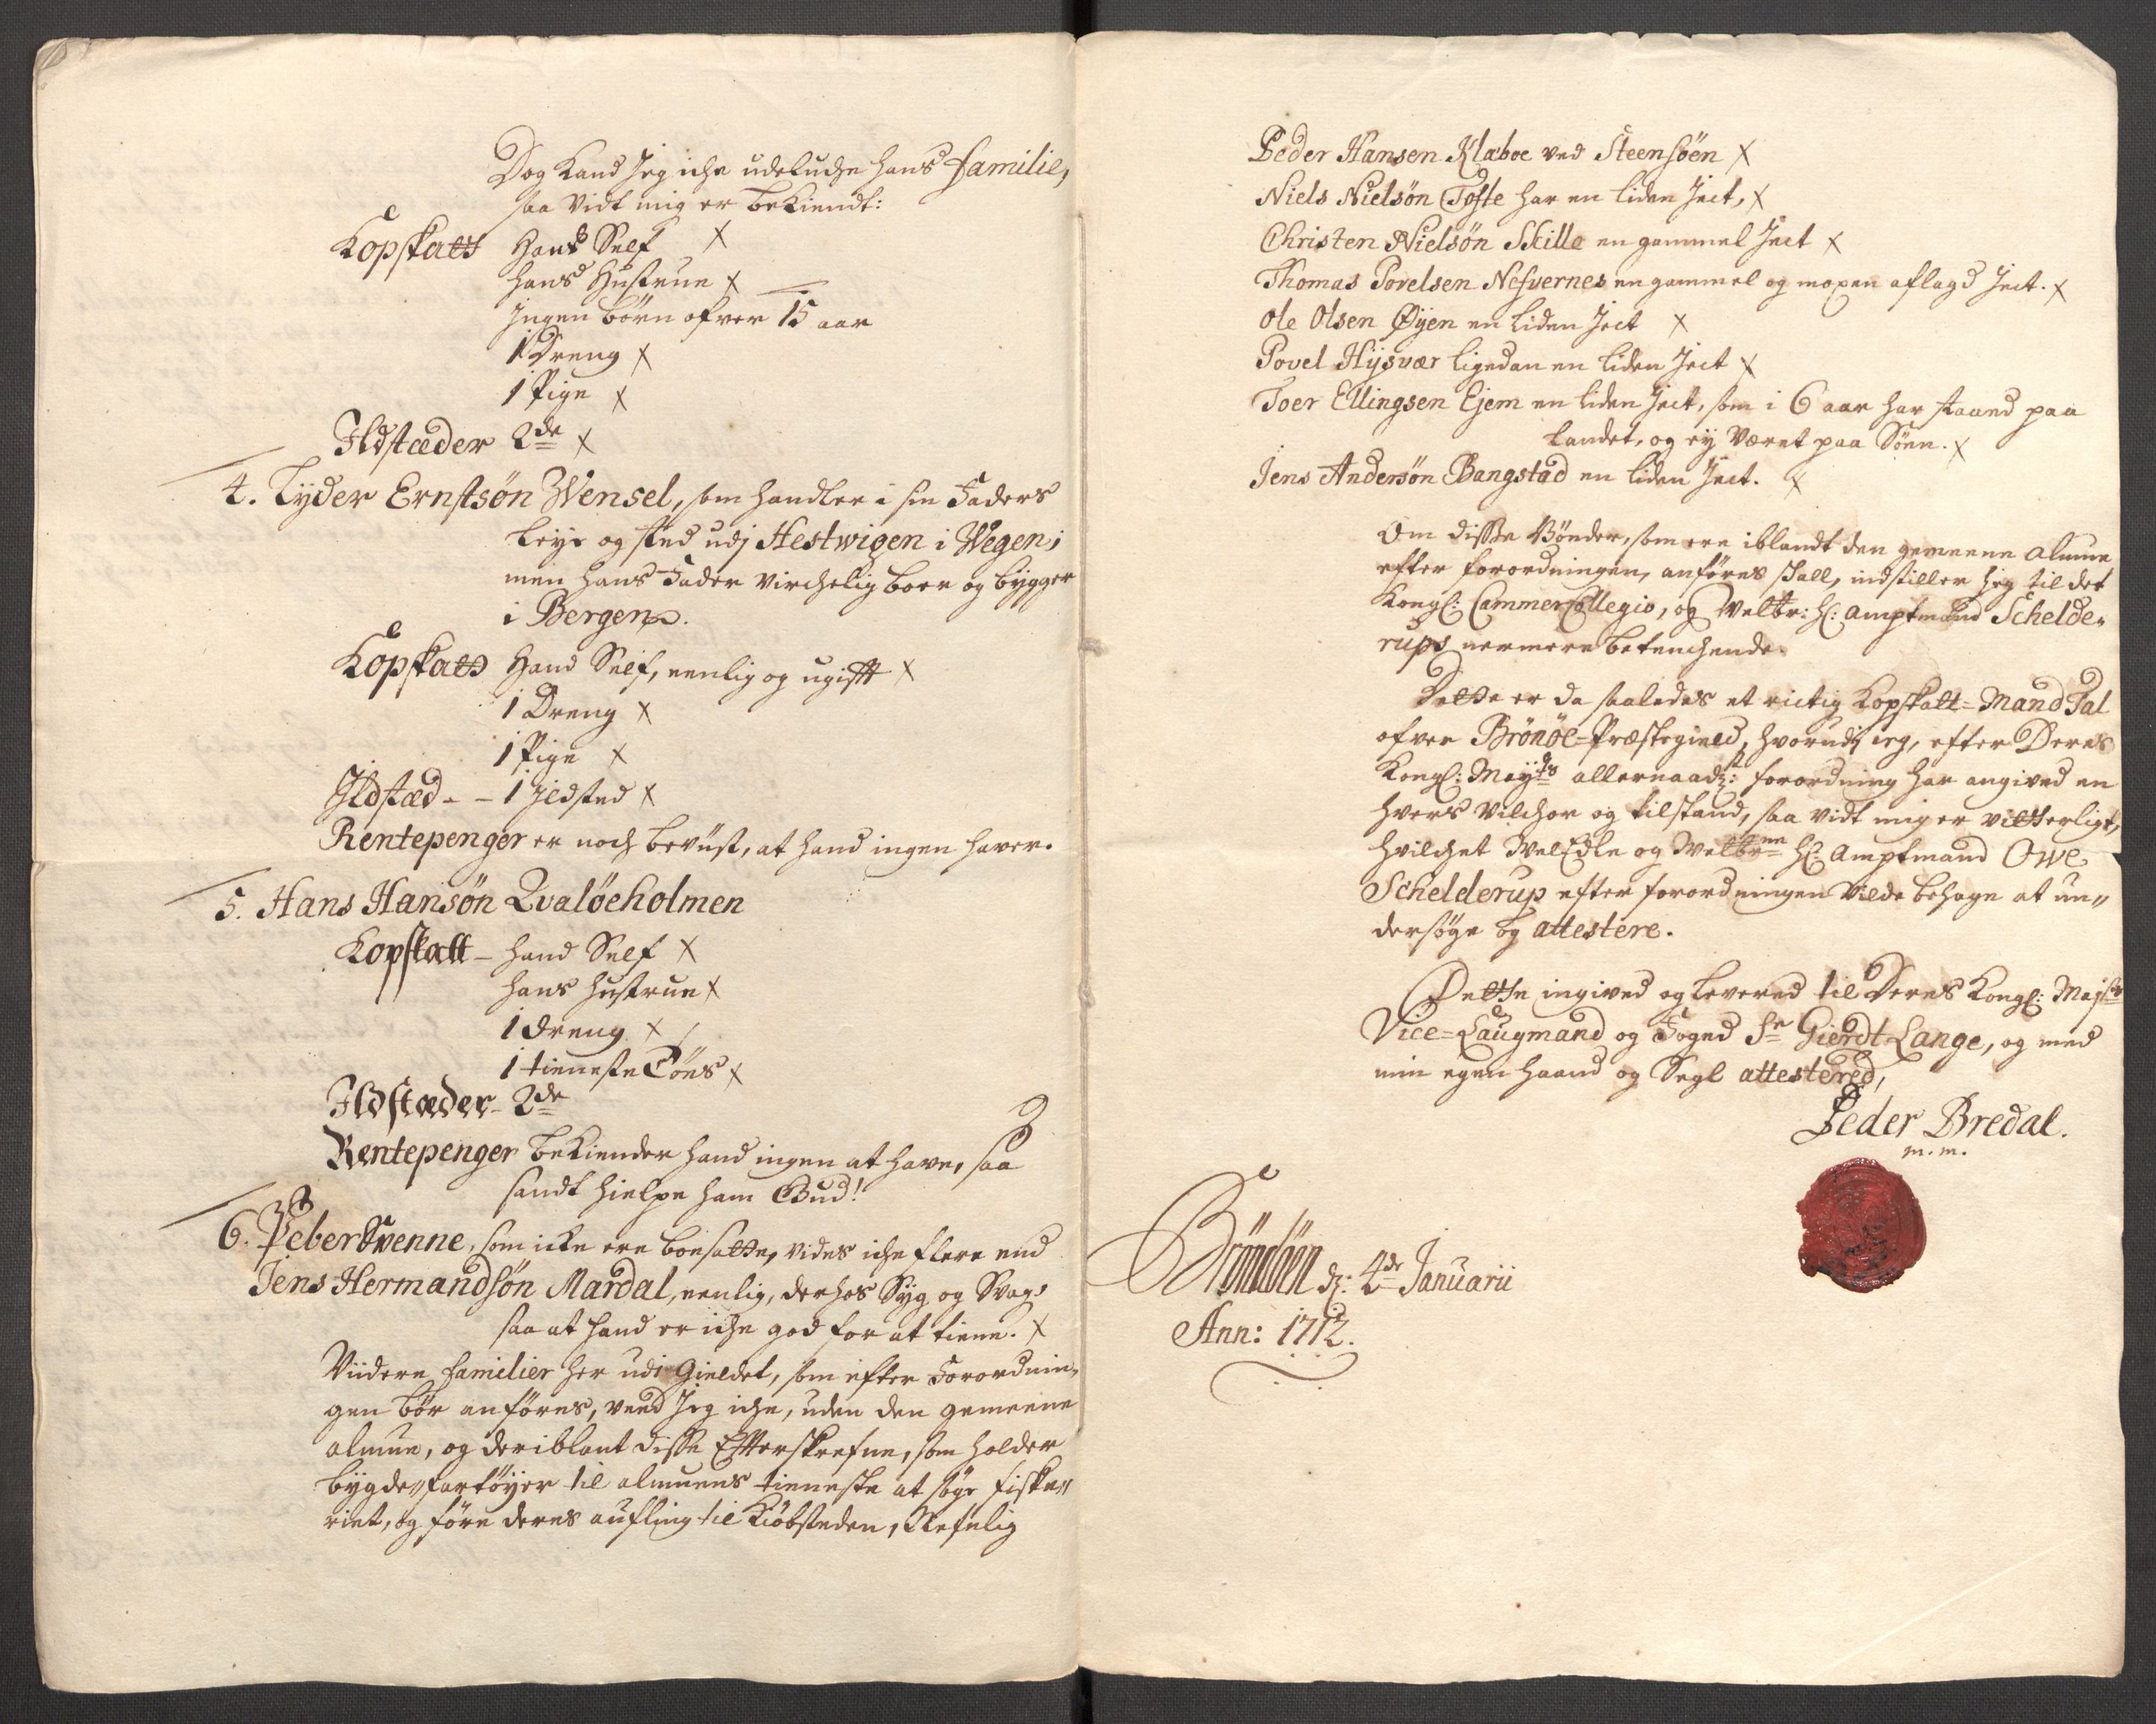 Dog kand Jeg iche udelucke hans familie,
saa vidt mig er bekiendt:
Kopskatt Hand Self X
hans Hustrue X
Ingen börn ofver 15 aar
1 Dreng X
1 Pige X
Ildstæder 2de X
4. Lyder Ernstsøn Wensel, som handler i sin Faders
leye og sted udj Hestwigen i Wegen;
men hans Fader virchelig boer og bygger
i Bergen.
Kopskatt Hand Self, eenlig og ugifft X
1 Dreng X
1 Pige X
Ildstæd - - 1 Ildsted X
Rentepenger er noch bevüst, at hand ingen haver.
5. Hans Hansøn Qvaløeholmen
Kopskatt - hand Self X
hans hustrue X
1 dreng X
1 tieneste Töes X
Ildstæder - 2de
Rentepenger bekiender hand ingen at have, saa
sandt hielpe ham Gud!
6. Pebersvenne, som icke ere boesatte, vides iche flere end
Jens Hermandsøn Mardal, eenlig, derhos Syg og Svag,
saa at hand er iche god for at tiene. X
Viidere familier her udi Gieldet, som efter Forordnin,
gen bør anföres, veed Jeg iche, uden den gemeene
almue, og deriblant disse Efterskrefne, som holder
bygde-fartöyer til almuens tieneste at söge fiske,,
riet, og före deres aufling til Kiöbsteden, Nefnlig
Peder Hansen Klæboe ved Steensöen X
Niels Nielsön Tofte har en liden Ject, X
Christen Nielsön Skille en gammel Ject X
Thomas Povelsen Nesvernes en gammel og moxen aflagd Ject. X
Ole Olsen Øyen en liden Ject X
Povel Hysvær ligedan en liden Ject X
Toer Ellingsen Ejem en liden Ject, som i 6 aar har staaed paa
landet, og ey været paa Söen. X
Jens Andersön Bangstad en liden Ject. X
Om disse Bönder, som ere iblandt den gemeene almue
efter forordningen, anföres skall, indstiller Jeg til det
Kongl: CammerCollegio, og Welbr: Hr: amptmand Schelde,
rups nermere betenchende.
Dette er da saaledes et rictig Kopskatt=Mand Tal
ofver Brönöe=Præstegield, hvorudj ieg, efter Deres
Kongl: Mayts allernaadst: forordning har angived en
hvers vilchor og tilstand, saa vidt mig er vitterligt,
hvilchet WelEdle og Welbrne Hr: Amptmand Owe
Schelderup efter forordningen vilde behage at un,,
dersöge og attestere.
Dette ingived og levered til Deres Kongl: Majts
Vice=Laugmand og Foged Sr Gierdt Lange, og med
min egen haand og Segl attestered,
Peder Bredal.
m. m.
Bröndöen d: 4de Januarii
Ann: 1712.